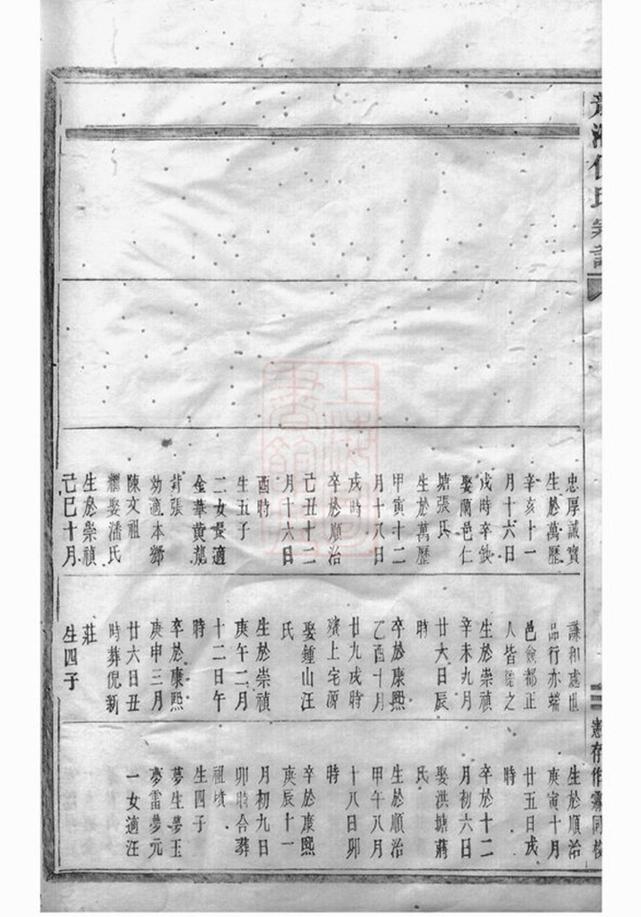 忠厚誠實
生於萬歷
辛亥十一
月十六日
戌時辛歿
娶蘭邑仁
塘張氏
生於萬歷
甲寅十二
月十八日
戌時
卒於順治
己丑十二
月十六日
酉時
生五子
二女長適
金華黄龍
背張
幼適本鄉
陳文祖
繼娶潘氏
生於崇禎
己巳十月
謙和處世
品行亦端
邑僉都正
人皆
生於崇禎
辛未九月
廿六日辰
時
卒於康熙
乙酉十月
廿九戌時
殯上宅源
娶鍾山汪
氏
生於崇禎
庚午二月
十二日午
時
卒於康熙
庚申三月
廿六日丑
時葬倪新
莊
生四子
生於順治
庚寅十月
廿五日戌
時
卒於十二
月初六日
娶洪塘蔣
氏
生於順治
甲午八月
十八日卯
時
卒於康熙
庚辰十一
月初九日
卯時合葬
祖墳
生四子
夢生夢玉
夢雷夢元
一女適汪